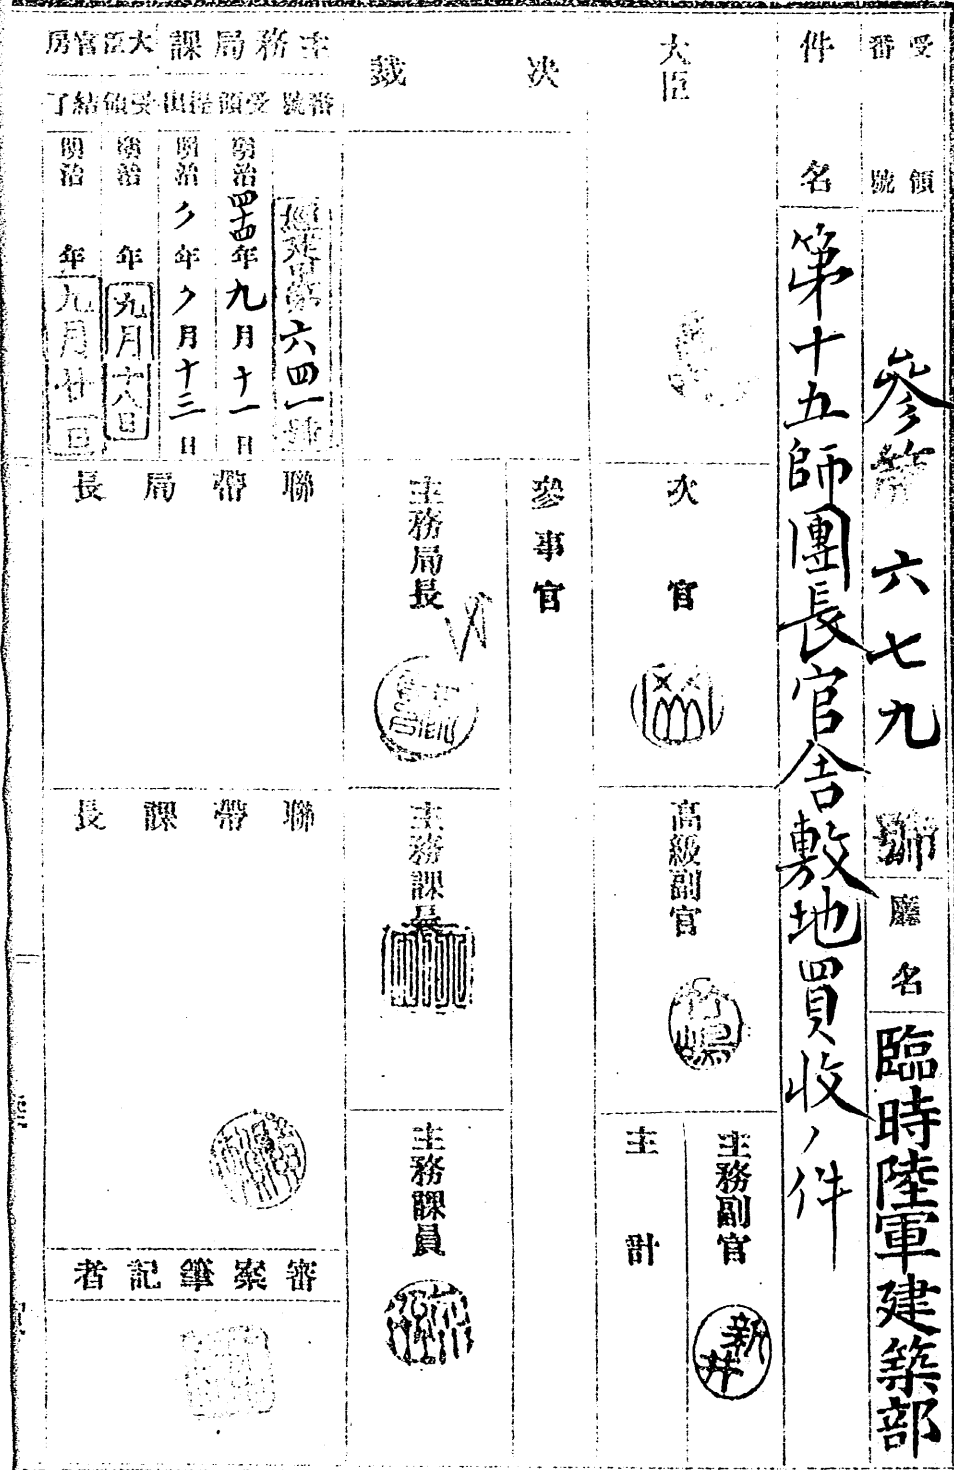 受領番號
參第六七九號
廳名
臨時陸軍建築部
件名
第十五師團長官舍敷地買收ノ件
大臣
次官
高級副官
主務副官
新井
主計
決裁
參事官
主務局長
主務課長
主務課員
主務局課
番號
經建甲第六四一號
受領
明治四四年九月十一日
提出
明治〃年〃月十三日
大臣官房
受領
明治 年九月十八日
結了
明治 年九月廿一日
聯帶局長
聯帶課長
審案筆記者